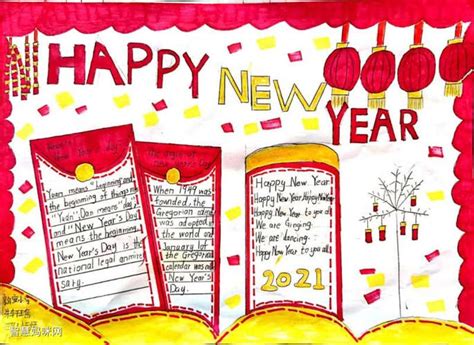 HAPPY NEW
YEAR
Yuan means "beginning and
the beginning of things
"Yuan Dan means "day"
and "New Year's Day"
means the beginning.
New Year's Day is the
national legal
When 1949 was
founded, the
Gregorian
was adopted
world and
January 1st of
the Gregorian
calendar was called
New Year's
Day.
Happy New Year
Happy New Year Happy New Year
Happy New Year to you all
We are singing
We are dancing.
Happy New Year to you all
2021
智慧妈咪网